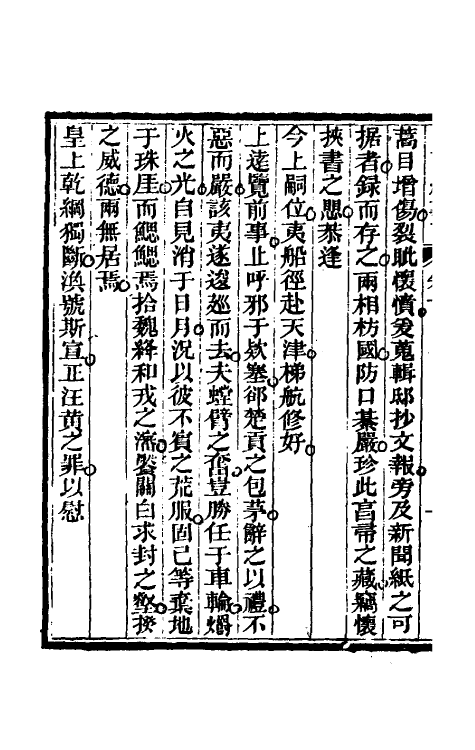 蒿目增傷裂眦懷憤爰蒐輯邸抄文報旁及新聞紙之可
据者錄而存之兩相枋國防口綦嚴珍此享帚之藏竊懷
挾書之懼恭逢
今上嗣位夷船徑赴天津梯航修好
上達覽前事止呼邪于欵塞郤楚貢之包茅辭之以禮不
惡而嚴該夷遂逡廵而去夫螳臂之奮豈勝任于車輪爝
火之光自見消于日月況以彼不賓之荒服固已等棄地
于珠厓而鰓鰓焉拾魏絳和戎之瀋鑿關白求封之壑揆
之威德兩無居焉
皇上乾綱獨斷渙號斯宣正汪黄之罪以慰